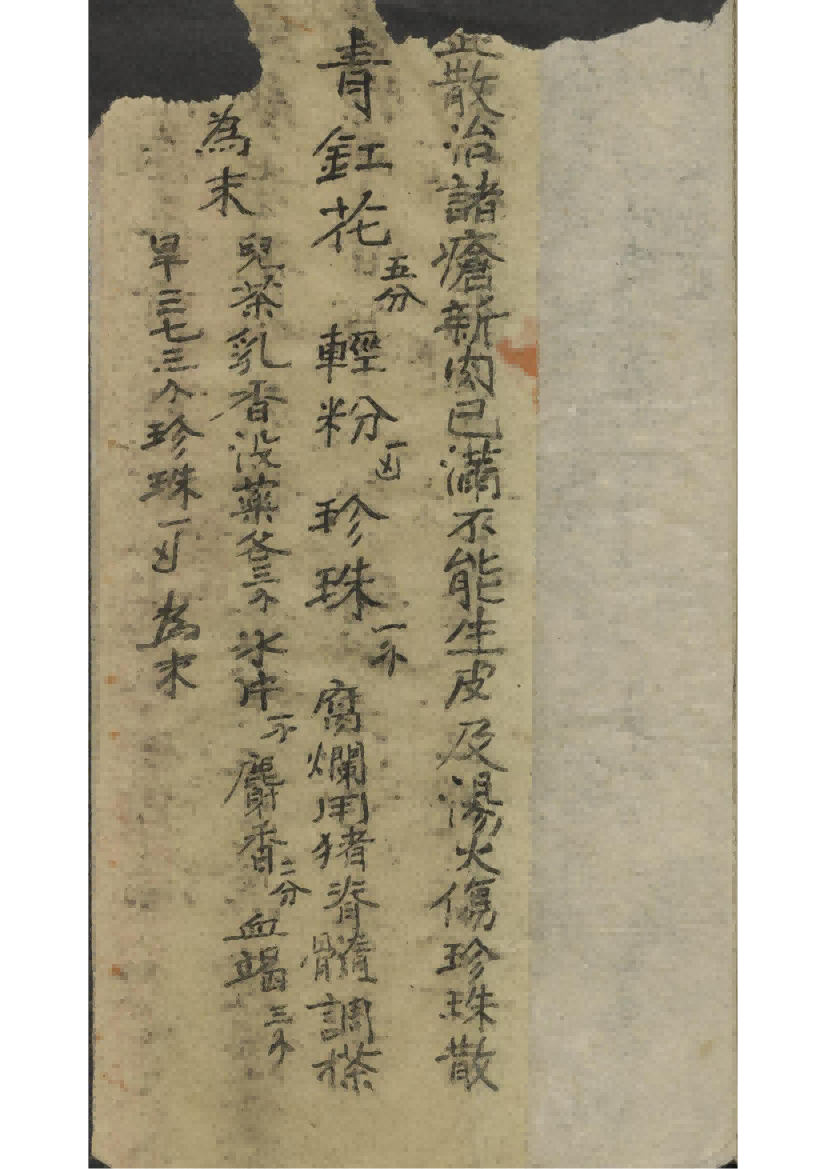 散治諸瘡新肉已滿不能生皮及湯火傷珍珠散
青缸花五分 輕粉一 珍珠一 腐爛用猪脊髓調搽
為末
兒茶乳香没藥各三 氷片一 麝香二分 血竭三
旱三七三 珍珠一 為末